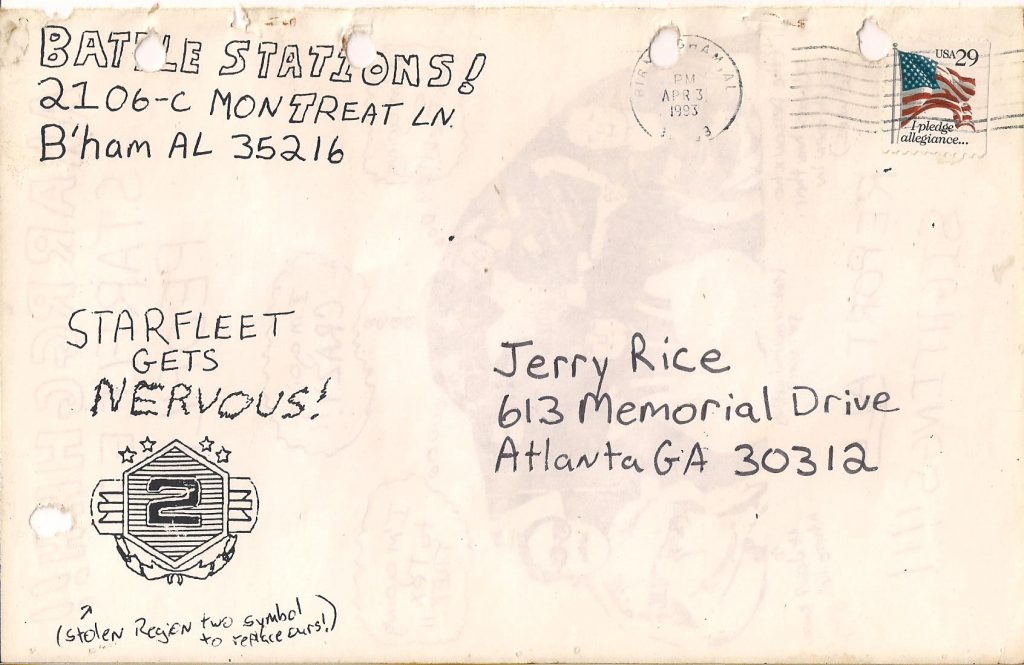 BATTLE STATIONS!
2106-C MONTREAT LN.
B'ham AL 35216
PM
APR 3
1993
USA 29
I pledge
allegiance...
STARFLEET
GETS
NERVOUS!
2
(stolen Region two symbol
to replace ours!)
Jerry Rice
613 Memorial Drive
Atlanta GA 30312